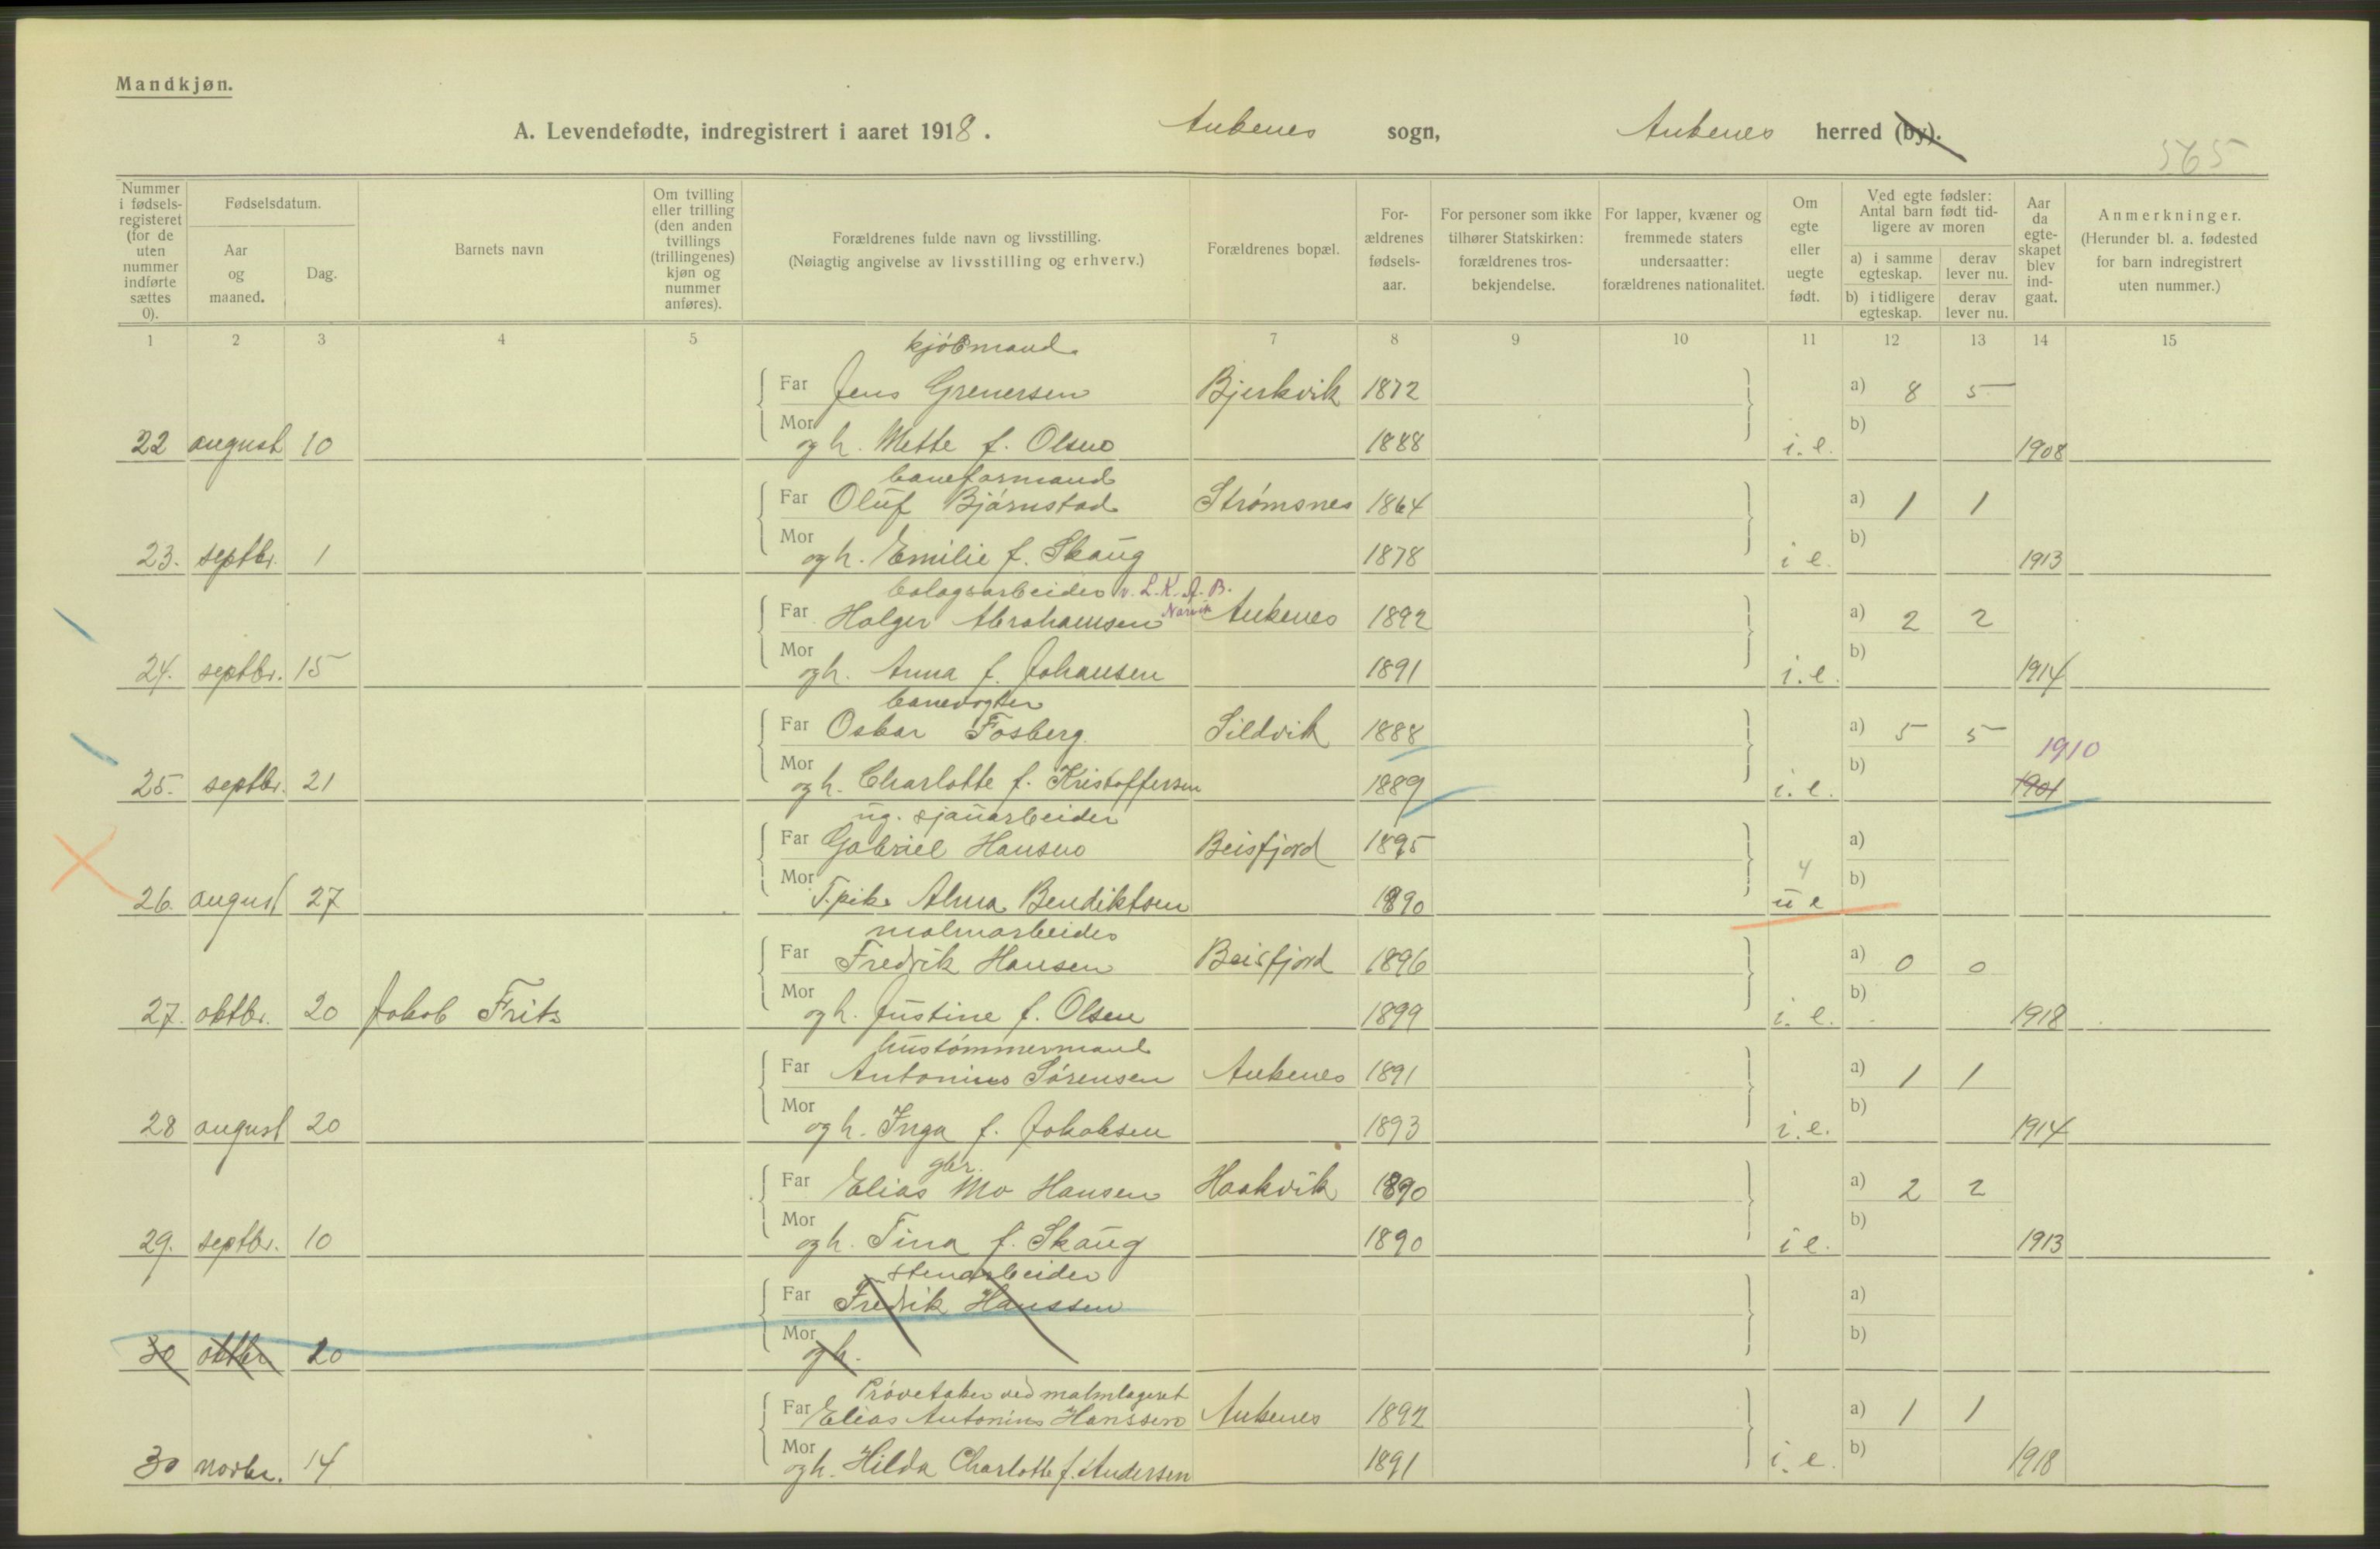 Mandkjøn.
A. Levendefødte, indregistrert i aaret 1918. Ankenes sogn, Ankenes herred (by).
565
Nummer i fødsels-registeret (for de uten nummer indførte sættes 0).
Fødselsdatum.
Aar og maaned.
Dag.
Barnets navn
Om tvilling eller trilling (den anden tvillings (trillingenes) kjøn og nummer anføres).
Forældrenes fulde navn og livsstilling.
(Nøiagtig angivelse av livsstilling og erhverv.)
Forældrenes bopæl.
For-ældrenes fødsels-aar.
For personer som ikke tilhører Statskirken: forældrenes tros-bekjendelse.
For lapper, kvæner og fremmede staters undersaatter: forældrenes nationalitet.
Om egte eller uegte født.
Ved egte fødsler: Antal barn født tid-ligere av moren
a) i samme egteskap. derav lever nu.
b) i tidligere egteskap. derav lever nu.
Aar da egte-skapet blev ind-gaat.
Anmerkninger.
(Herunder bl. a. fødested for barn indregistrert uten nummer.)
1 2 3 4 5 7 8 9 10 11 12 13 14 15
kjøbmand
Far Jens Grenersen Bjerkvik 1872 a) 8 5
Mor b)
22 august 10 og h. Mette f. Olsen 1888 i. e. 1908
baneformand
Far Oluf Bjørnstad Strømsnes 1864 a) 1 1
Mor b)
23. septbr. 1 og h. Emilie f. Skaug 1878 i e. 1913
bolagsarbeider v. L.K.A.B. Narvik
Far Holger Abrahamsen Ankenes 1892 a) 2 2
Mor b)
24. septbr. 15 og h. Anna f. Johansen 1891 i. e. 1914
banevogter
Far Oskar Fosberg Sildvik 1888 a) 5 5 1910
Mor b)
25. septbr. 21 og h. Charlotte f. Kristoffersen 1889 i. e. 1901
ug. sjauarbeider
Far Gabriel Hansen Beisfjord 1895 a)
Mor 4 b)
26. august 27 T. pike Alma Bendiktsen 1890 u e
malmarbeider
Far Fredrik Hansen Beisfjord 1896 a) 0 0
Mor b)
27. oktbr. 20 Jakob Frits og h. Justine f. Olsen 1899 i. e. 1918
hustømmermand
Far Antonius Sørensen Ankenes 1891 a) 1 1
Mor b)
28 august 20 og h. Inga f. Jakobsen 1893 i. e. 1914
gbr.
Far Elias Mo Hansen Haakvik 1890 a) 2 2
Mor b)
29. septbr. 10 og h. Tina f. Skaug 1890 i e. 1913
stenarbeider
Far Fredrik Hanssen a)
Mor b)
30 oktbr 20 og h.
Prøvetaker ved malmlageret
Far Elias Antonius Hanssen Ankenes 1892 a) 1 1
Mor b)
30 novbr. 14 og h. Hilda Charlotte f. Andersen 1891 i. e. 1918